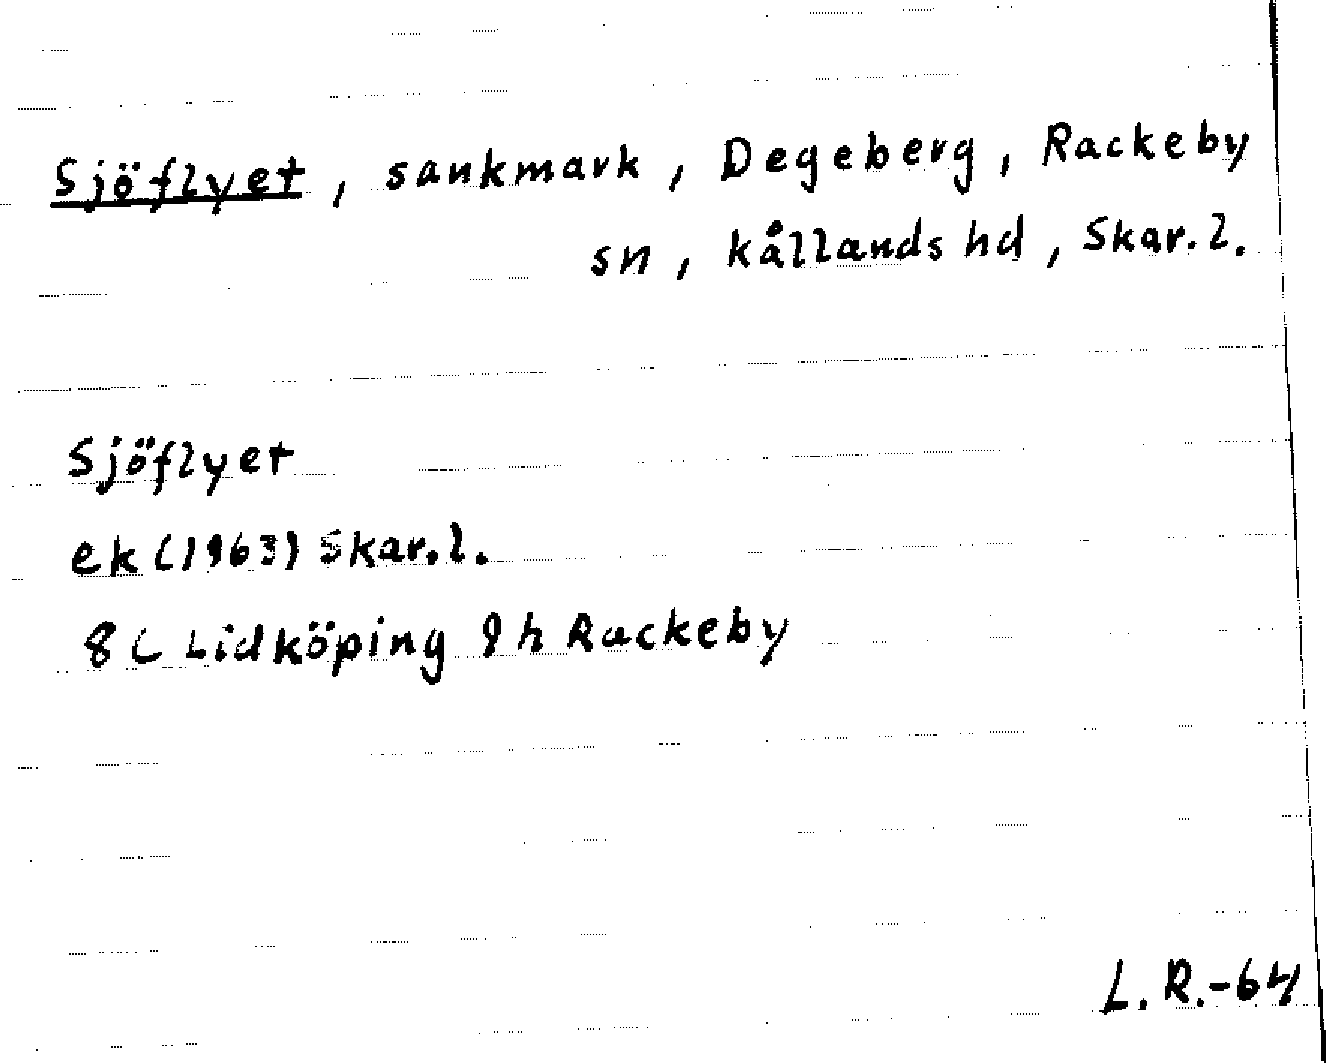 Sjöflyet, sankmark, Degeberg, Rackeby
sn, Kållands hd, Skar.l.
Sjöflyet
ek (1963) Skar.l.
8C Lidköping 9h Rackeby
L.R.-64